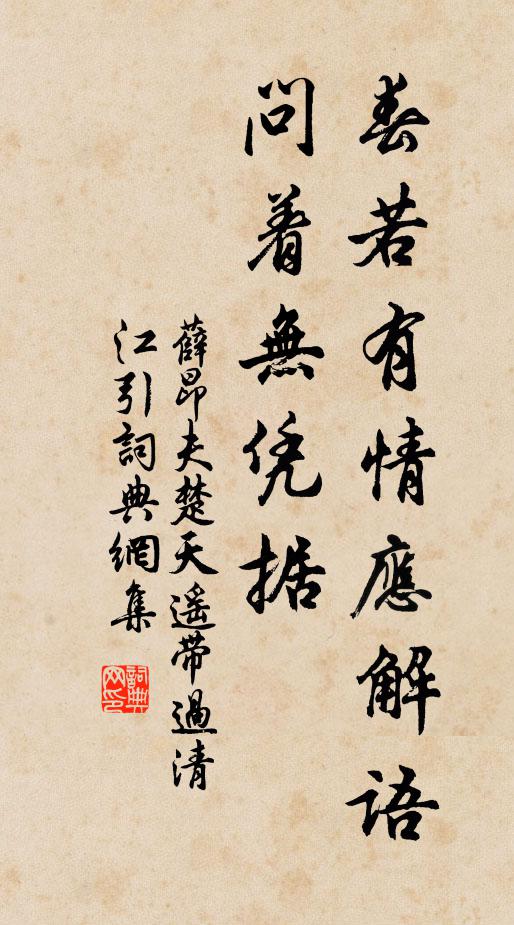 春若有情應解語
問着無凭据
薛昂夫楚天遥帶過清
江引詞典網集
詞典网印